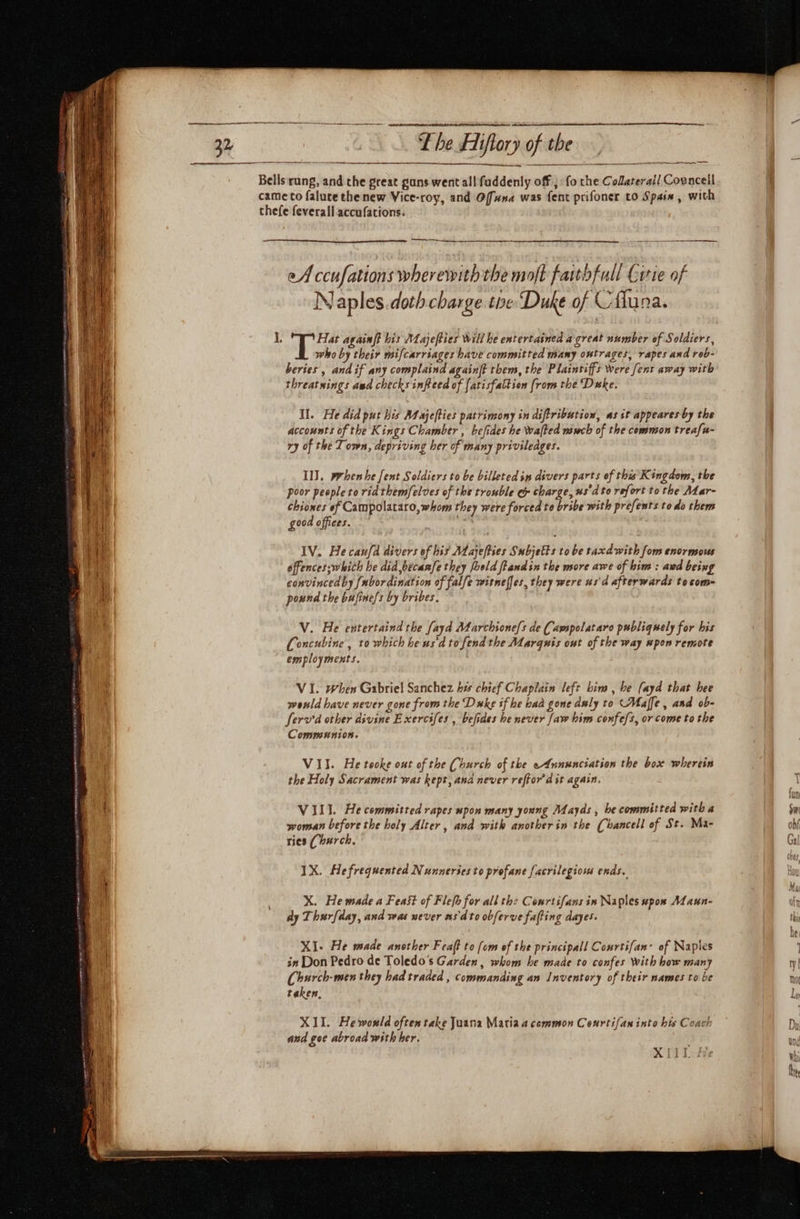 32 The Hiſtory of the
Bells rung, and the great guns went all ſuddenly off; ſo the Collaterall Councell
came to ſalute the new Vice-roy, and Oſſuna was ſent priſoner to Spain, with
theſe ſeverall accuſations.
Accuſations wherewith the moſt faithfull Citie of
Naples doth charge the Duke of Oſſuna.
I. THat againſt his Majeſties Will he entertained a great number of Soldiers,
who by their miſcarriages have committed many outrages, rapes and rob-
beries, and if any complaind againſt them, the Plaintiffs were ſent away with
threatnings and checks inſteed of ſatisfaction from the Duke.
II. He did put his Majeſties patrimony in diſtribution, as it appeares by the
accounts of the Kings Chamber, beſides he waſted much of the common treaſu-
ry of the Town, depriving her of many priviledges.
III. When he ſent Soldiers to be billeted in divers parts of this Kingdom, the
poor people to rid themſelves of the trouble & charge, us'd to reſort to the Mar-
chiones of Campolataro, whom they were forced to bribe with preſents to do them
good offices.
IV. He cauſd divers of his Majeſties Subjects to be taxd with ſom enormous
offences; which he did, becauſe they ſhold ſtand in the more awe of him: and being
convinced by ſubordination of falſe witneſſes, they were us'd afterwards to com-
pound the buſineſs by bribes.
V. He entertaind the ſayd Marchioneſs de Campolataro publiquely for his
Concubine, to which he us'd to ſend the Marquis out of the way upon remote
employments.
VI. When Gabriel Sanchez his chief Chaplain left him, he ſayd that hee
would have never gone from the Duke if he had gone duly to Maſſe, and ob-
ſerv'd other divine Exerciſes, beſides he never ſaw him confeſs, or come to the
Communion.
VII. He tooke out of the Church of the Annunciation the box wherein
the Holy Sacrament was kept, and never reſtor'd it again.
VIII. He committed rapes upon many young Mayds, he committed with a
woman before the holy Alter, and with another in the Chancell of St. Ma-
ries Church.
IX. He frequented Nunneries to profane ſacrilegious ends.
X. He made a Feaſt of Fleſh for all the Courtiſans in Naples upon Maun-
dy Thurſday, and was never us'd to obſerve faſting dayes.
XI. He made another Feaſt to ſom of the principall Courtiſans of Naples
in Don Pedro de Toledo's Garden, whom he made to confes with how many
Church-men they had traded, commanding an Inventory of their names to be
taken.
XII. He would often take Juana Maria a common Courtiſan into his Coach
and goe abroad with her.
XIII. He